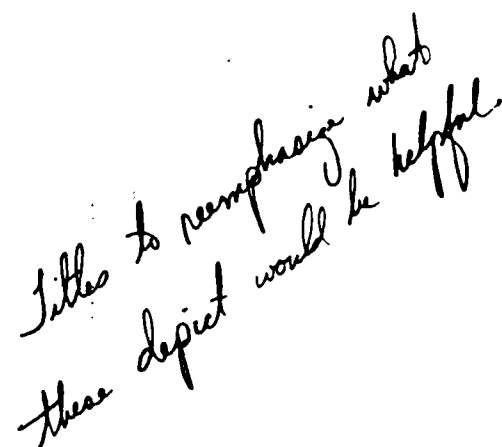 Titles to reemphasize what
these depict would be helpful.